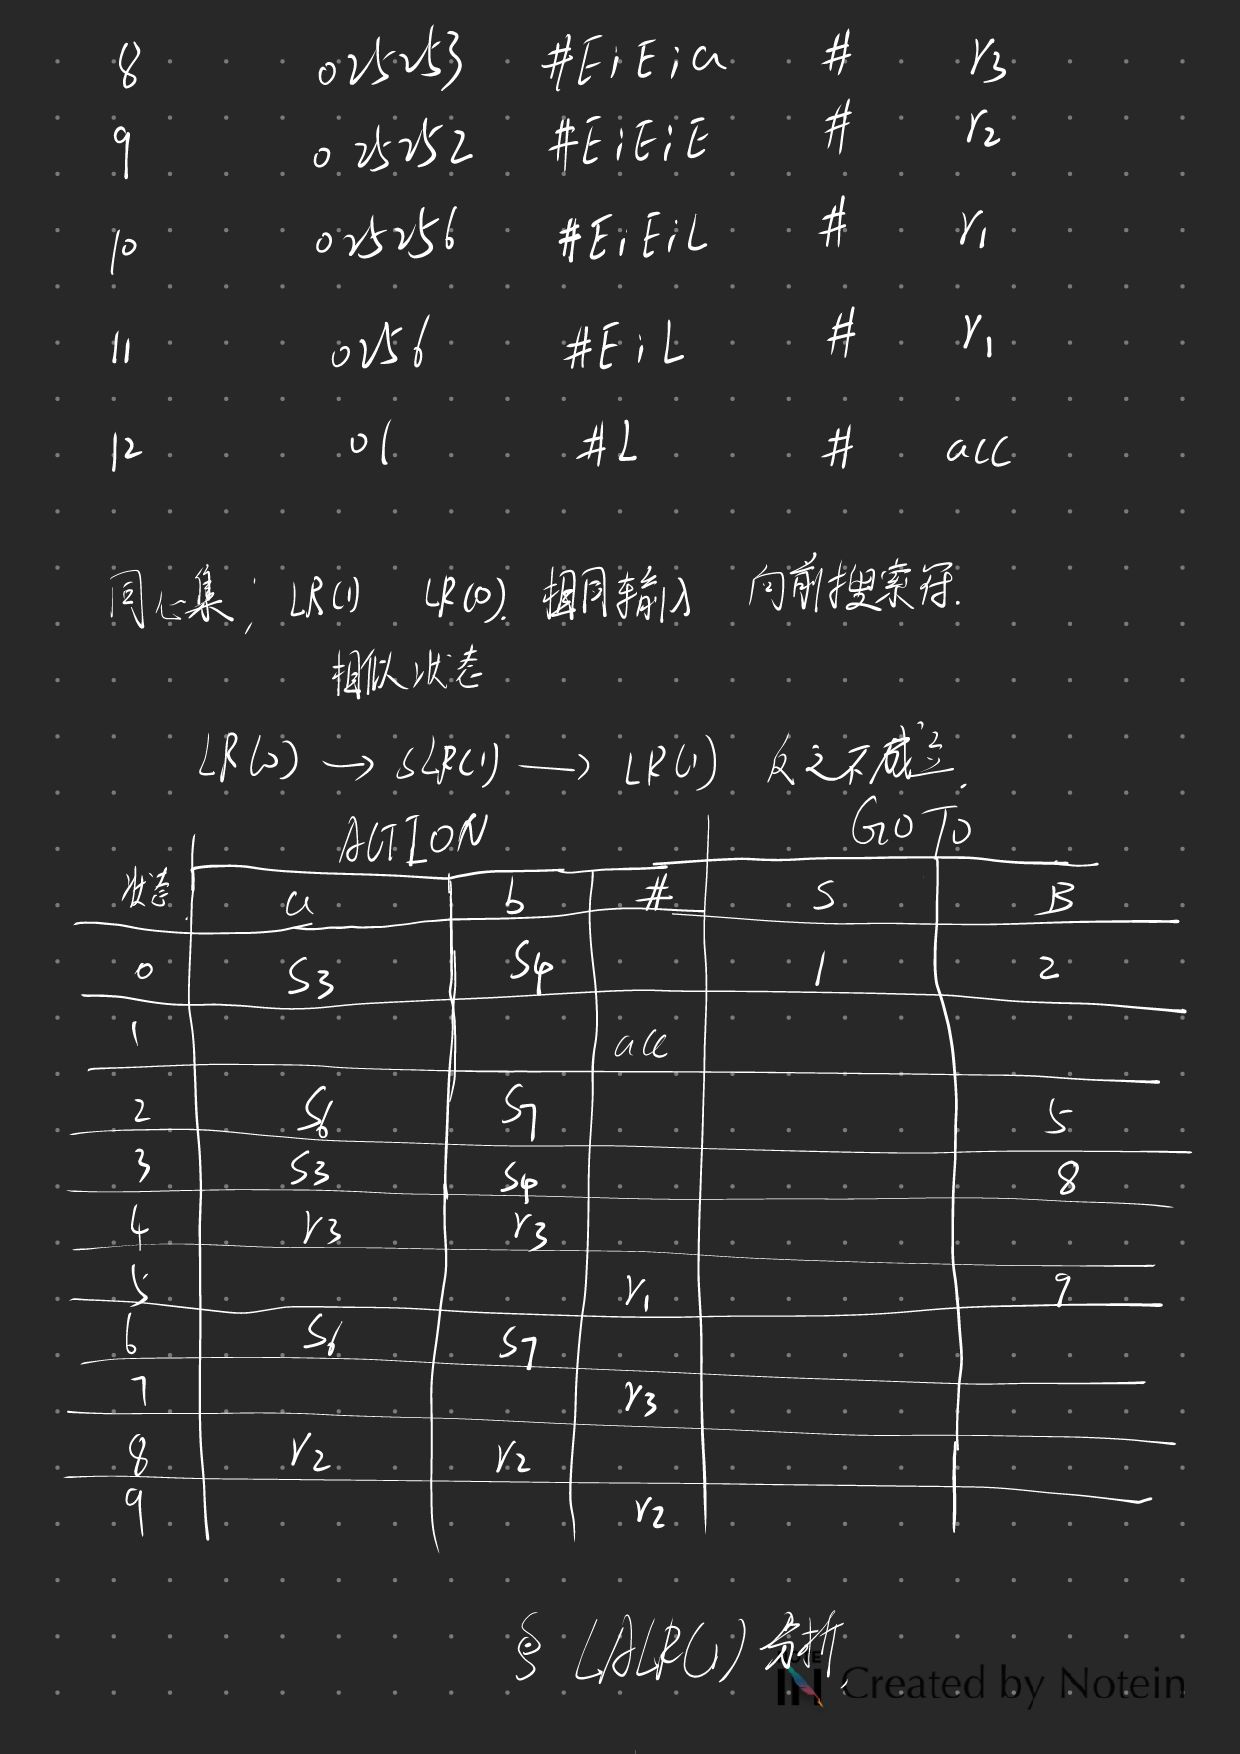 8 025253 #EiEia # r3
9 025252 #EiEiE # r2
10 025256 #EiEiL # r1
11 0256 #EiL # r1
12 01 #L # acc
同心集; LR(1) LR(0). 相同输入 向前搜索符.
相似状态
LR(0) → SLR(1) → LR(1) 反之不成立.
ACTION GOTO
状态 a b # S B
0 S3 S4 1 2
1 acc
2 S6 S7 5
3 S3 S4 8
4 r3 r3
5 r1 9
6 S6 S7
7 r3
8 r2 r2
9 r2
§ LALR(1) 分析
Created by Notein